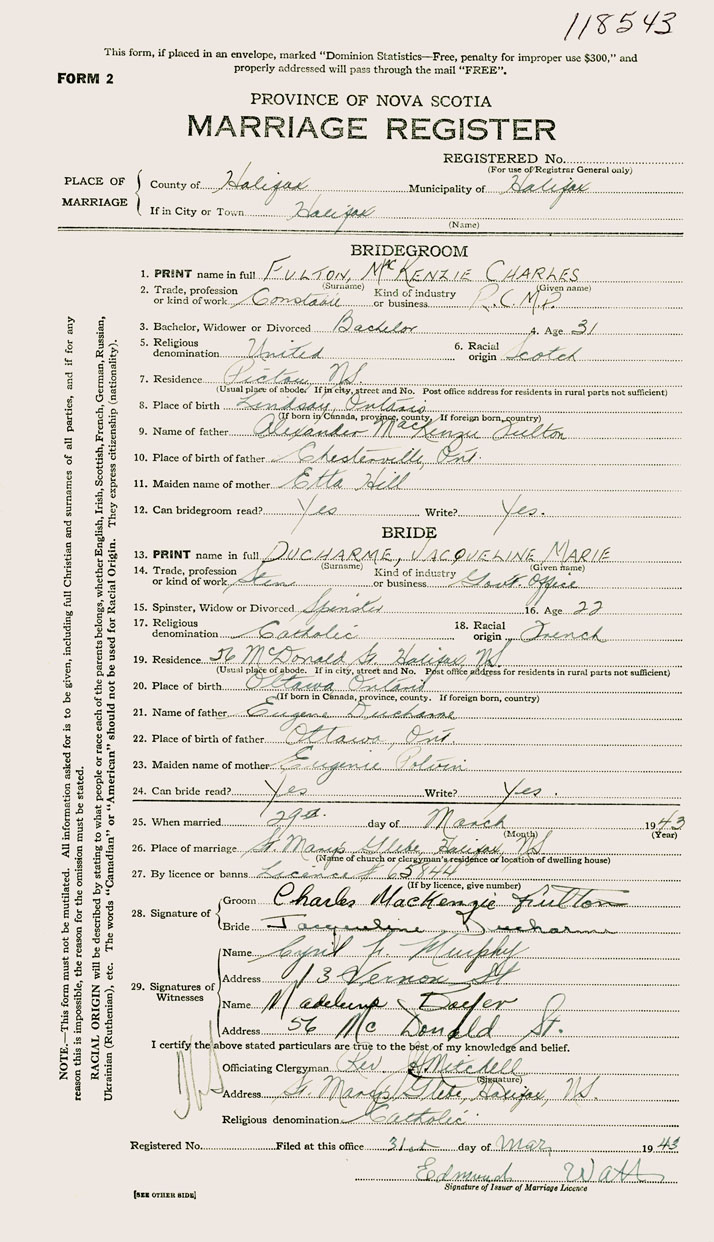 118543
This form, if placed in an envelope, marked "Dominion Statistics—Free, penalty for improper use $300," and
properly addressed will pass through the mail "FREE".
FORM 2
PROVINCE OF NOVA SCOTIA
MARRIAGE REGISTER
REGISTERED No.
(For use of Registrar General only)
PLACE OF MARRIAGE
County of Halifax Municipality of Halifax
If in City or Town Halifax
(Name)
BRIDEGROOM
1. PRINT name in full FULTON, MacKENZIE CHARLES
(Surname) (Given name)
2. Trade, profession or kind of work Constable Kind of industry or business R.C.M.P.
3. Bachelor, Widower or Divorced Bachelor 4. Age 31
5. Religious denomination United 6. Racial origin Scotch
7. Residence Pictou, NS.
(Usual place of abode. If in city, street and No. Post office address for residents in rural parts not sufficient)
8. Place of birth Lindsay Ontario
(If born in Canada, province, county. If foreign born, country)
9. Name of father Alexander MacKenzie Fulton
10. Place of birth of father Chesterville, Ont.
11. Maiden name of mother Etta Hill
12. Can bridegroom read? Yes Write? Yes.
BRIDE
13. PRINT name in full DUCHARME, JACQUELINE MARIE
(Surname) (Given name)
14. Trade, profession or kind of work Sten Kind of industry or business Govt. Office
15. Spinster, Widow or Divorced Spinster 16. Age 22
17. Religious denomination Catholic 18. Racial origin French
19. Residence 56 McDonald St. Halifax, NS.
(Usual place of abode. If in city, street and No. Post office address for residents in rural parts not sufficient)
20. Place of birth Ottawa Ontario
(If born in Canada, province, county. If foreign born, country)
21. Name of father Eugene Ducharme
22. Place of birth of father Ottawa, Ont.
23. Maiden name of mother Eugenie Potvin
24. Can bride read? Yes Write? Yes.
25. When married 29th day of March 1943
(Month) (Year)
26. Place of marriage St. Marys Glebe, Halifax, NS
(Name of church or clergyman's residence or location of dwelling house)
27. By licence or banns Licence # 65844
(If by licence, give number)
28. Signature of
Groom Charles MacKenzie Fulton
Bride Jacqueline Ducharme
29. Signatures of Witnesses
Name Cyril F. Murphy
Address 13 Vernon St
Name Madeline
Address 56 Mc Donald St.
I certify the above stated particulars are true to the best of my knowledge and belief.
Officiating Clergyman Rev Mitchell
(Signature)
Address St. Marys Glebe, Halifax, NS.
Religious denomination Catholic.
Registered No. Filed at this office 31st day of Mar, 1943
Edmund Watt
Signature of Issuer of Marriage Licence
[SEE OTHER SIDE]
NOTE.—This form must not be mutilated. All information asked for is to be given, including full Christian and surnames of all parties, and if for any
reason this is impossible, the reason for the omission must be stated.
RACIAL ORIGIN will be described by stating to what people or race each of the parents belongs, whether English, Irish, Scottish, French, German, Russian,
Ukrainian (Ruthenian), etc. The words "Canadian" or "American" should not be used for Racial Origin. They express citizenship (nationality).